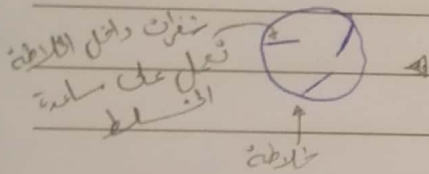 شفرات داخل الخلاطة
تعمل على مساعدة
الخلط
خلاطة